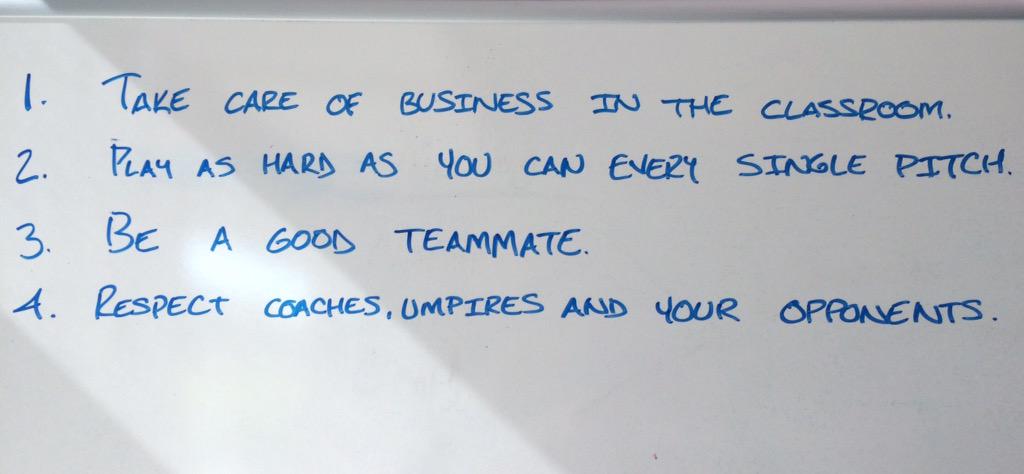 1. TAKE CARE OF BUSINESS IN THE CLASSROOM.
2. PLAY AS HARD AS YOU CAN EVERY SINGLE PITCH.
3. BE A GOOD TEAMMATE.
4. RESPECT COACHES, UMPIRES AND YOUR OPPONENTS.